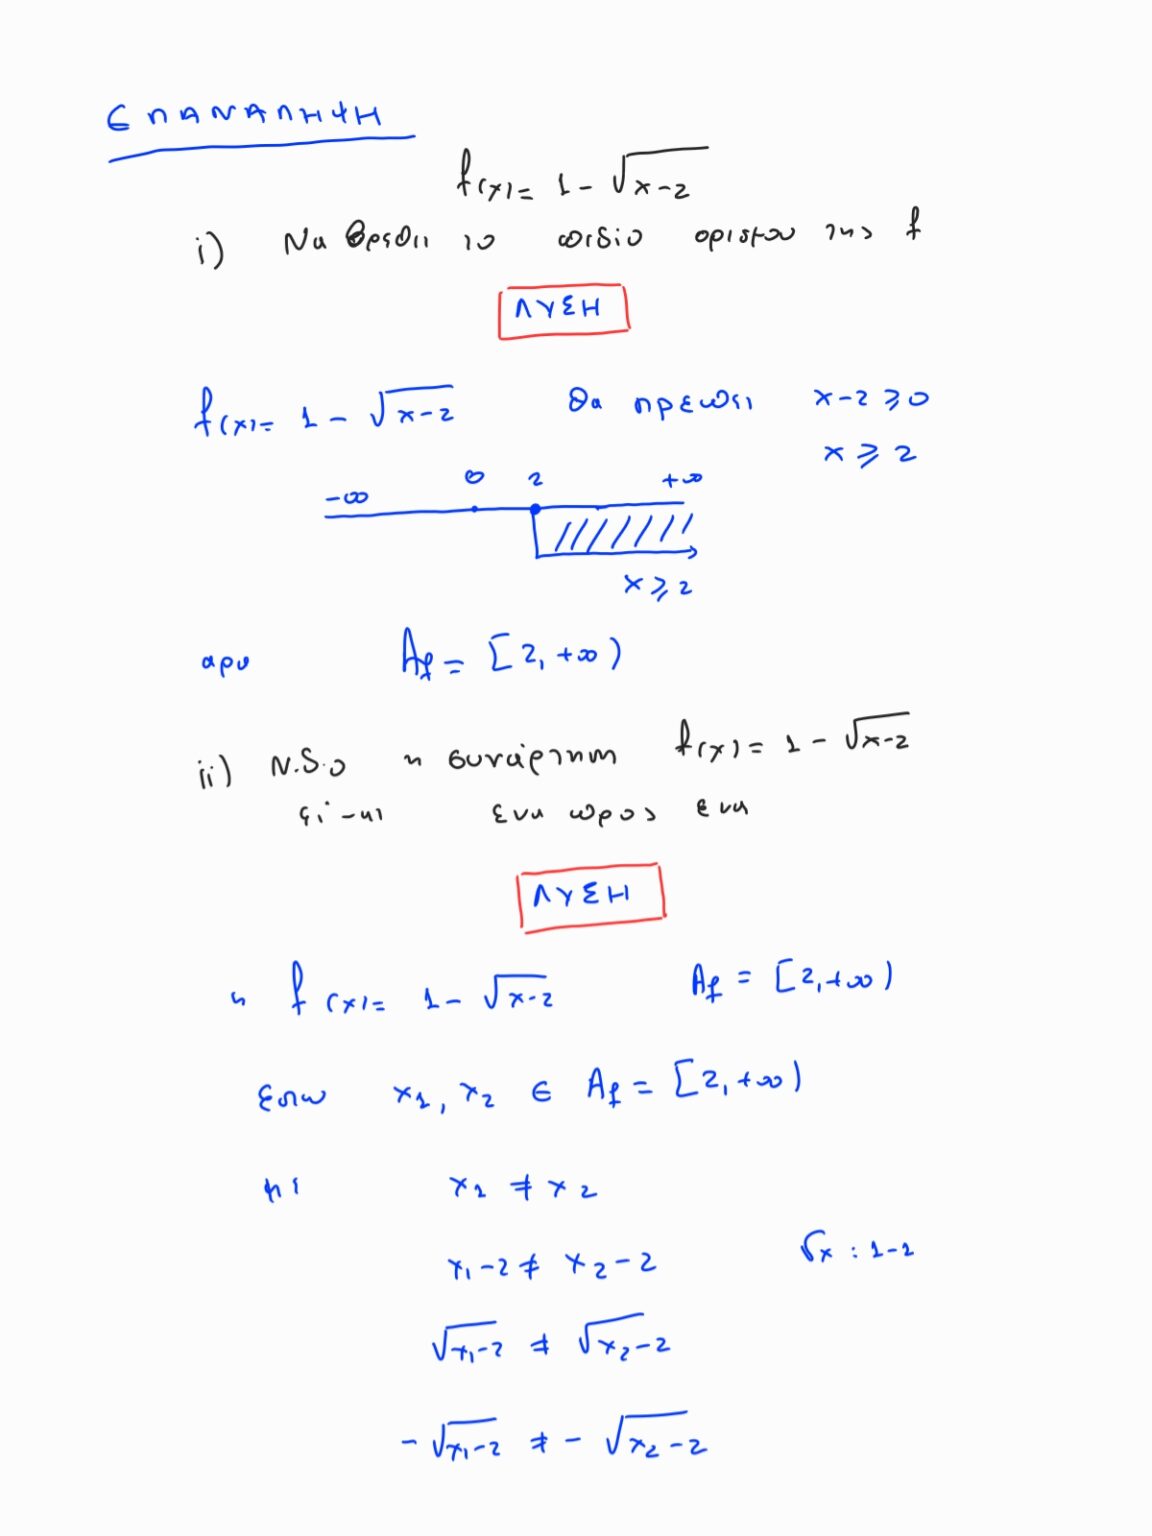 ΕΠΑΝΑΛΗΨΗ
f(x) = 1 - √(x-2)
i) Να βρεθει το πεδιο ορισμου της f
ΛΥΣΗ
f(x) = 1 - √(x-2) θα πρεπει x-2 ≥ 0
x ≥ 2
-∞ 0 2 +∞
x ≥ 2
αρα A_f = [2, +∞)
ii) Ν.δ.ο η συνάρτηση f(x) = 1 - √(x-2)
είναι ενα προς ενα
ΛΥΣΗ
η f(x) = 1 - √(x-2) A_f = [2, +∞)
Εστω x₁, x₂ ∈ A_f = [2, +∞)
με x₁ ≠ x₂
x₁-2 ≠ x₂-2 √x : 1-1
√(x₁-2) ≠ √(x₂-2)
-√(x₁-2) ≠ -√(x₂-2)